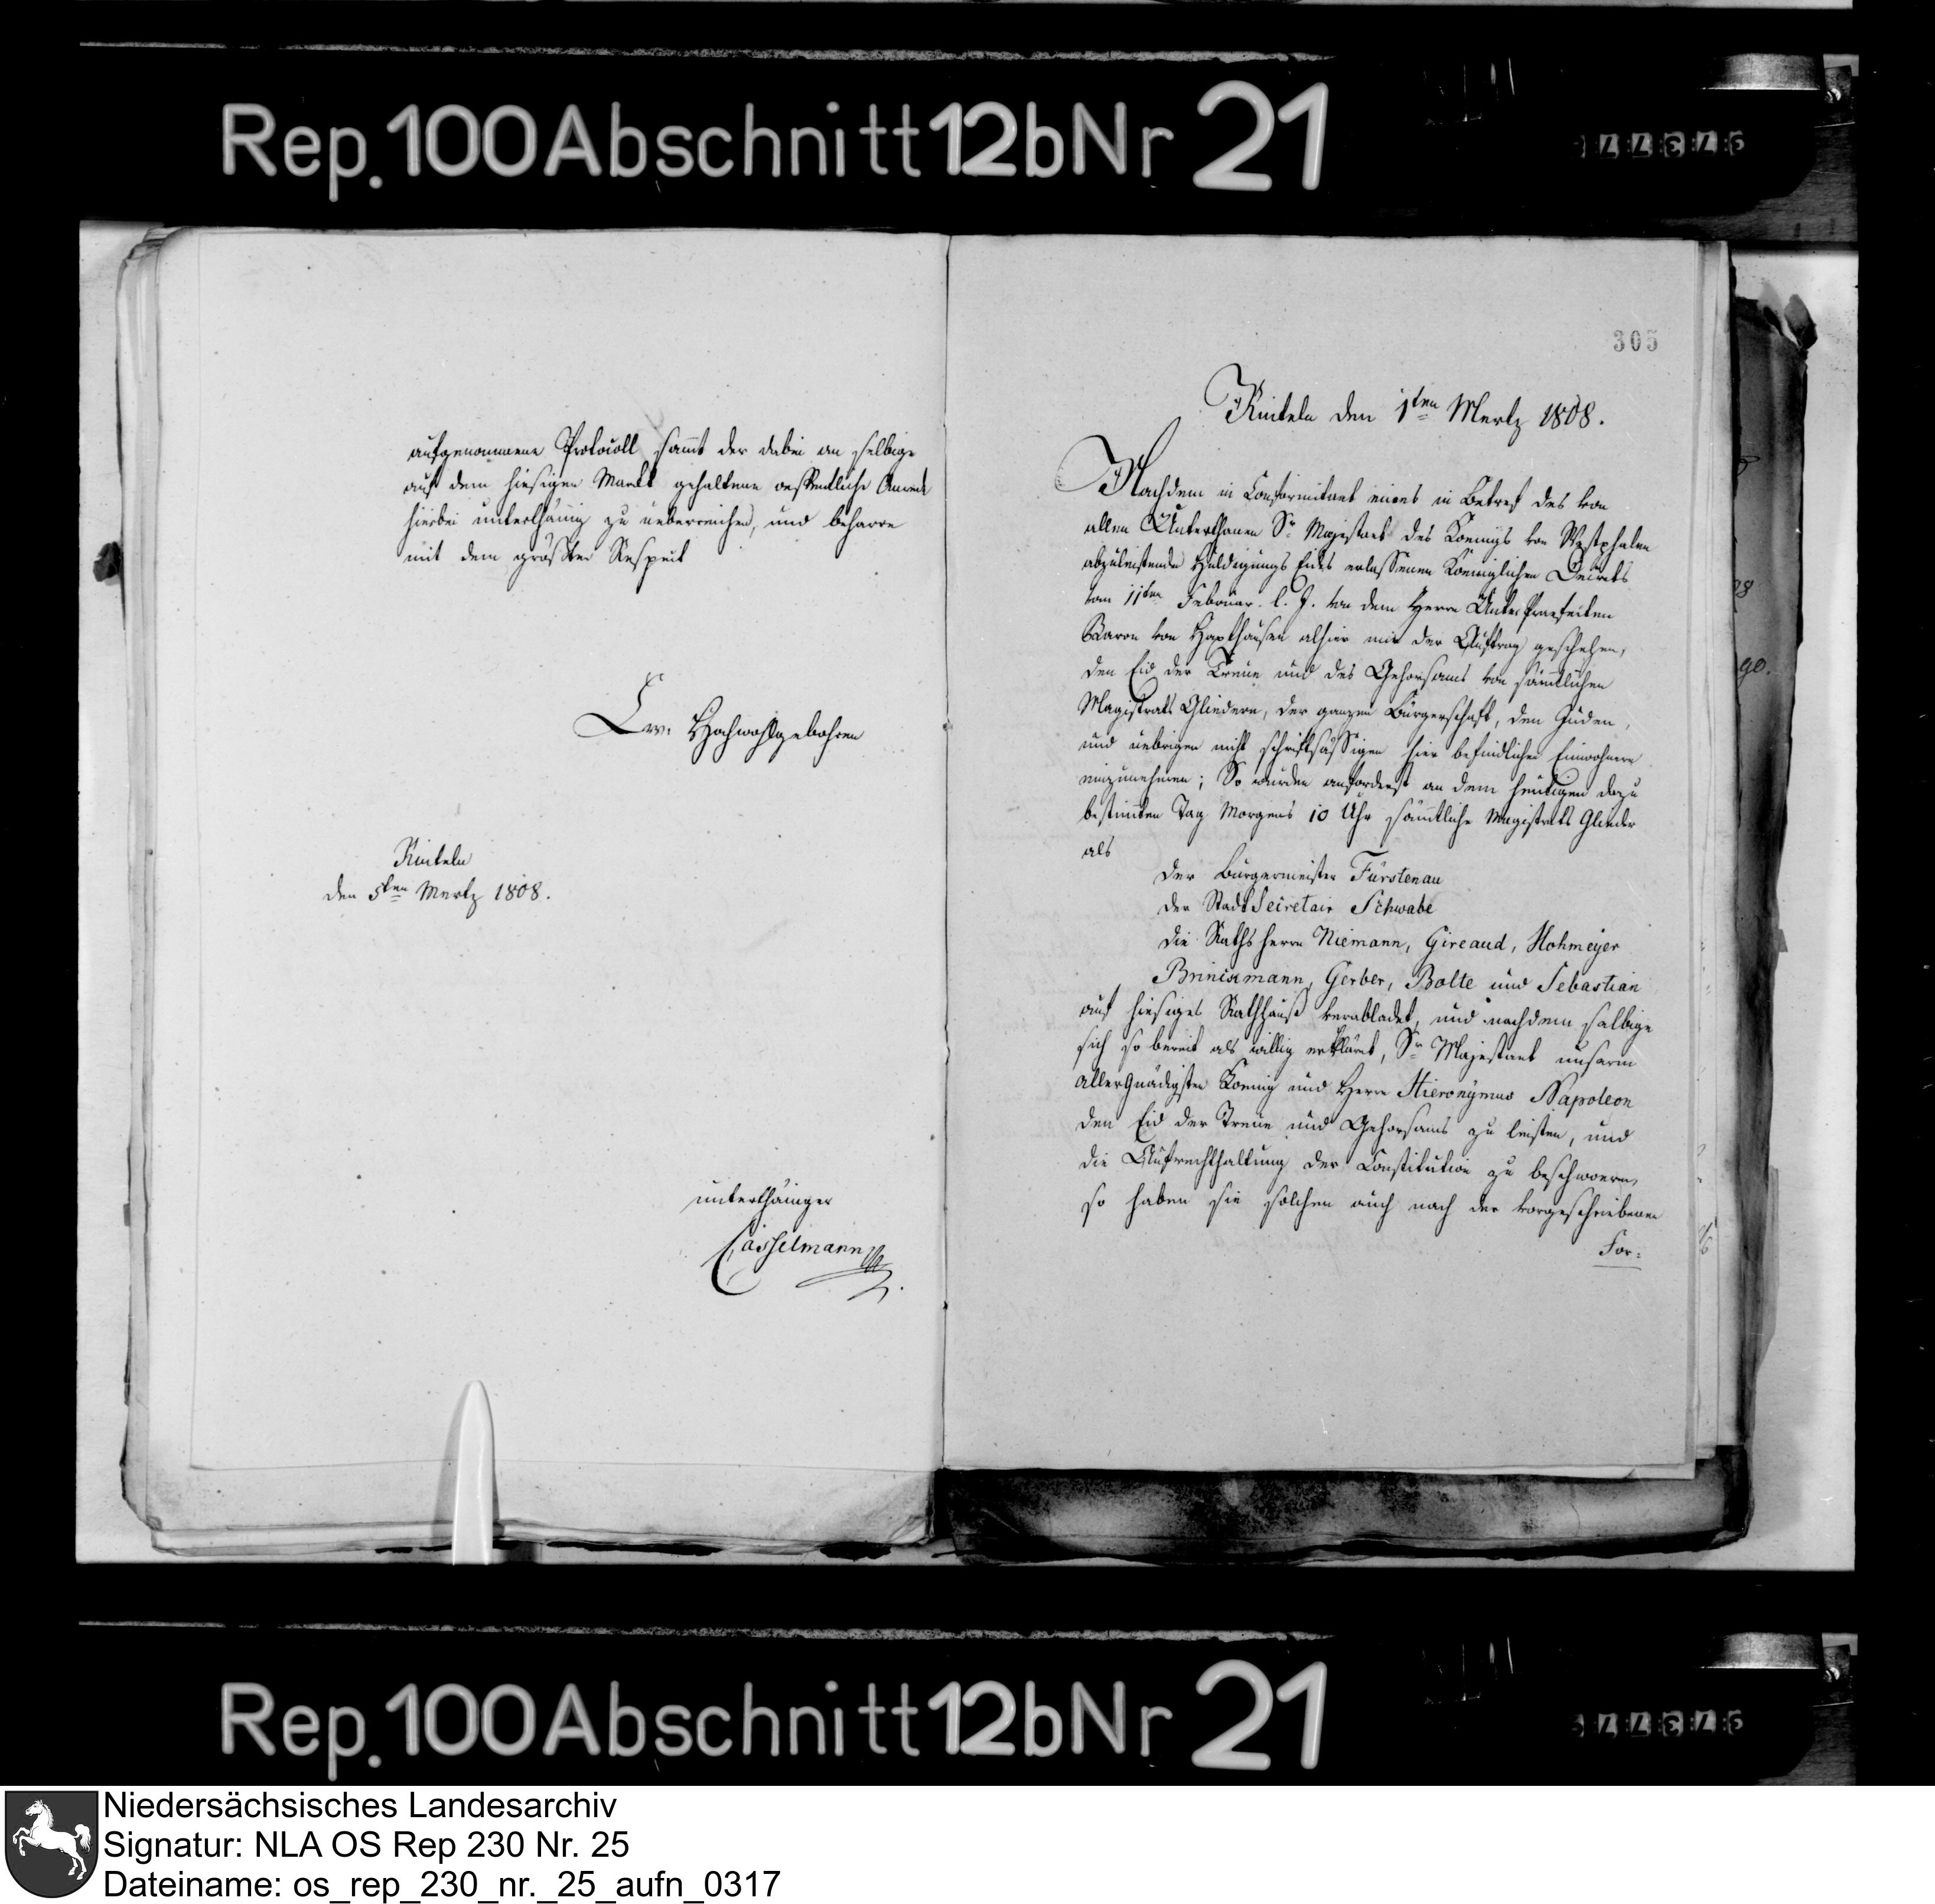 Rep.100Abschnitt12bNr 21
aufgenommene Protocoll sammt der dabei an selbige
auf dem hiesigen Markt gehaltene oeffentliche Anrede
hierbei unterthänig zu ueberreichen, und beharre
mit dem größten Respect
Ew. Hochwohlgebohren
Rinteln
den 5ten Mertz 1808.
unterthäniger
Casselmann
305
Rinteln den 1ten Mertz 1808.
Nachdem in Conformitaet eines in Betref des von
allen Unterthanen Sr Majestaet des Koenigs von Westphalen
abzuleistende Huldigungs Eides erlassenen Koeniglichen Decrets
vom 11ten Februar. l. J. von dem Herrn UnterPraefecten
Baron von Haxthausen alhier mir der Auftrag geschehen,
den Eid der Treue und des Gehorsams von sämtlichen
Magistrats Gliedern, der ganzen Bürgerschaft, den Juden,
und uebrigen nicht schriftsässigen hier befindlichen Einwohnern
einzunehmen; So wurden anforderst an dem heutigen dazu
bestimten Tag Morgens 10 Uhr sämmtliche Magistrats Glieder
als
der Bürgermeister Fürstenau
der Stadt Secretair Schwabe
die Raths Herrn Niemann, Gireaud, Hohmeyer
Brinckmann, Gerber, Bolte und Sebastian
auf hiesiges Rathhauß verabladet, und nachdem selbige
sich so bereit als willig erklärt, Sr Majestaet unserm
allergnädigsten Koenig und Herrn Hieronymus Napoleon
den Eid der Treue und Gehorsams zu leisten, und
die Aufrechthaltung der Constitution zu beschwoern,
so haben sie solchen auch nach der vorgeschriebenen
For:
Rep.100Abschnitt12bNr 21
Niedersächsisches Landesarchiv
Signatur: NLA OS Rep 230 Nr. 25
Dateiname: os_rep_230_nr._25_aufn_0317